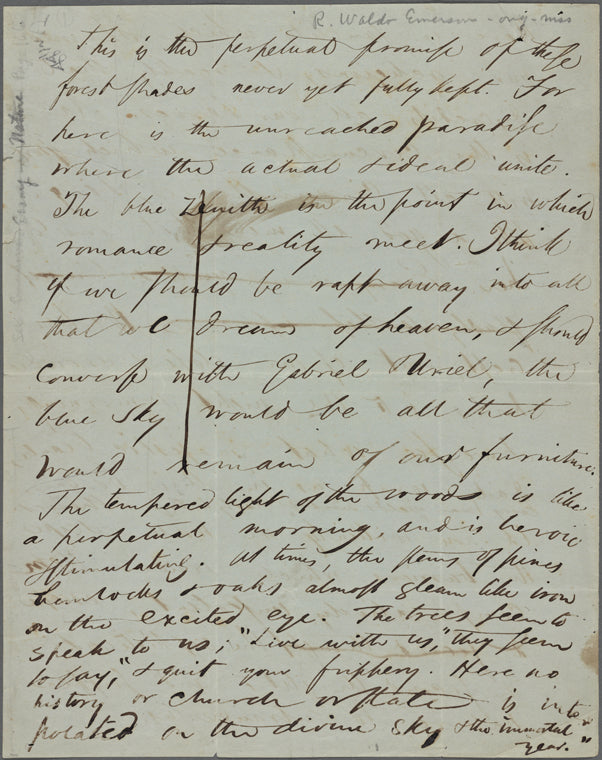 R. Waldo Emerson - orig - miss
This is the perpetual promise of these
forest shades never yet fully kept. For
here is the unreached paradise
where the actual & ideal unite.
The blue zenith is the point in which
romance & reality meet. I think
if we should be rapt away into all
that we dream of heaven, & should
converse with Gabriel & Uriel, the
blue sky would be all that
would remain of our furniture.
The tempered light of the woods is like
a perpetual morning, and is heroic
& stimulating. At times, the stems of pines
hemlocks & oaks almost gleam like iron
on the excited eye. The trees seem to
speak to us; "Live with us," they seem
to say, "& quit your frippery. Here no
history or church or state is inter
polated on the divine sky & the immortal
year."
Essay on Nature